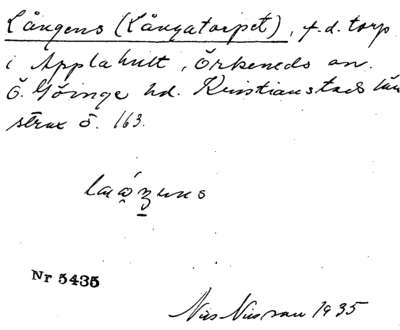 Långens (Långatorpet), f.d. torp
i Applahult, Örkeneds sn.
Ö. Göinge hd. Kristianstads län
strax ö. 163.
Nr 5435
Nils Nilsson 1935